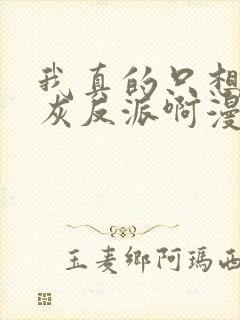 我真的只想
灰反派啊漫
玉麦鄉阿瑪西